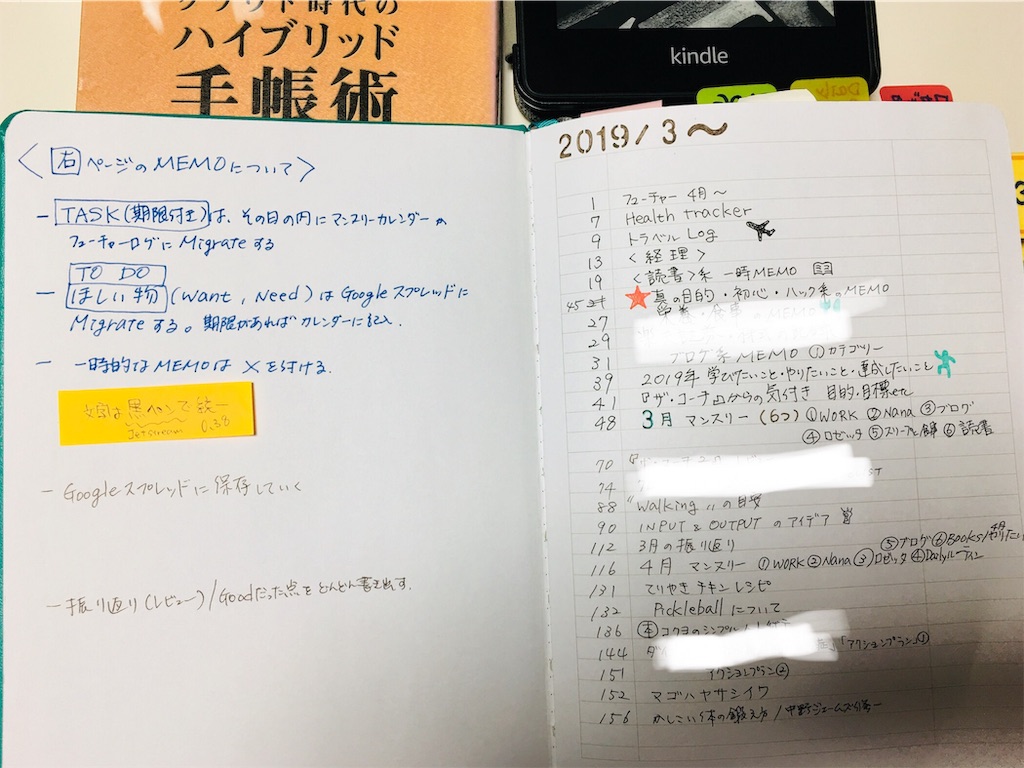 クラウド時代の
ハイブリッド
手帳術
kindle
Daily
<右ページのMEMOについて>
- TASK(期限付き)は、その日の内にマンスリーカレンダーか
フューチャーログにMigrateする
TO DO
- ほしい物(Want, Need)はGoogleスプレッドに
Migrateする。期限があればカレンダーに記入.
- 一時的なMEMOは×を付ける.
文字は黒ペンで統一
Jetstream 0.38
- Googleスプレッドに保存していく
- 振り返り(レビュー)/Goodだった点をどんどん書き出す.
2019/3〜
1 フューチャー 4月〜
7 Health tracker
9 トラベル Log
13 <経理>
19 <読書>系 一時MEMO
45 真の目的・初心・ハック系のMEMO
27 栄養・食事のMEMO
29
31 ブログ系MEMO ①カテゴリー
39 2019年 学びたいこと・やりたいこと・達成したいこと
41 ロザ・コーチ山からの気付き 目的・目標etc
48 3月 マンスリー (6つ) ①WORK ②Nana ③ブログ
④ロゼッタ ⑤スリープと食事 ⑥読書
70
74 ST
88 "Walking"の目安
90 INPUT & OUTPUT のアイデア
112 3月の振り返り
⑤ブログ ⑥Books/4月やりたい
116 4月 マンスリー ①WORK ②Nana ③ロゼッタ ④Dailyルーティン
131 てりやきチキンレシピ
132 Pickleballについて
136 本 コクヨのシンプル
144 「アクションプラン」①
151 アクションプラン②
152 マゴハヤサシイワ
156 かしこい体の鍛え方/中野ジェームズ修一